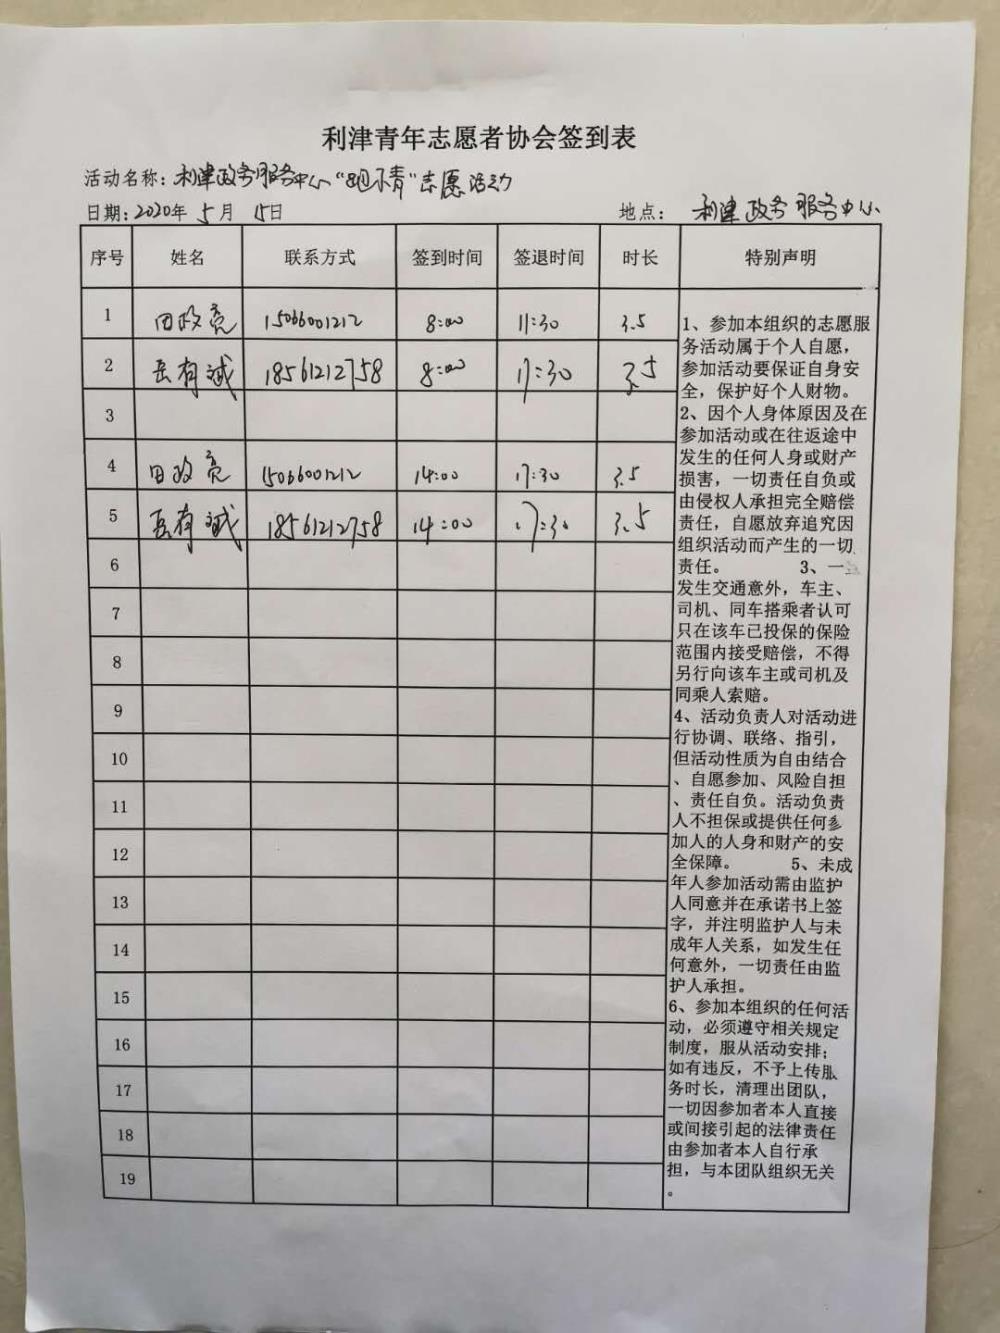 利津青年志愿者协会签到表
活动名称：利津政务服务中心“ 青”志愿活动
日期：2020年 5月 15日 地点： 利津政务服务中心
序号 姓名 联系方式 签到时间 签退时间 时长 特别声明
1 田政亮 15066001212 8:00 11:30 3.5
2 岳有斌 18561212758 8:00 11:30 3.5
3
4 田政亮 15066001212 14:00 17:30 3.5
5 岳有斌 18561212758 14:00 17:30 3.5
6
7
8
9
10
11
12
13
14
15
16
17
18
19
1、参加本组织的志愿服
务活动属于个人自愿，
参加活动要保证自身安
全，保护好个人财物。
2、因个人身体原因及在
参加活动或在往返途中
发生的任何人身或财产
损害，一切责任自负或
由侵权人承担完全赔偿
责任，自愿放弃追究因
组织活动而产生的一切
责任。 3、一旦
发生交通意外，车主、
司机、同车搭乘者认可
只在该车已投保的保险
范围内接受赔偿，不得
另行向该车主或司机及
同乘人索赔。
4、活动负责人对活动进
行协调、联络、指引，
但活动性质为自由结合
、自愿参加、风险自担
、责任自负。活动负责
人不担保或提供任何参
加人的人身和财产的安
全保障。 5、未成
年人参加活动需由监护
人同意并在承诺书上签
字，并注明监护人与未
成年人关系，如发生任
何意外，一切责任由监
护人承担。
6、参加本组织的任何活
动，必须遵守相关规定
制度，服从活动安排；
如有违反，不予上传服
务时长，清理出团队，
一切因参加者本人直接
或间接引起的法律责任
由参加者本人自行承
担，与本团队组织无关
。